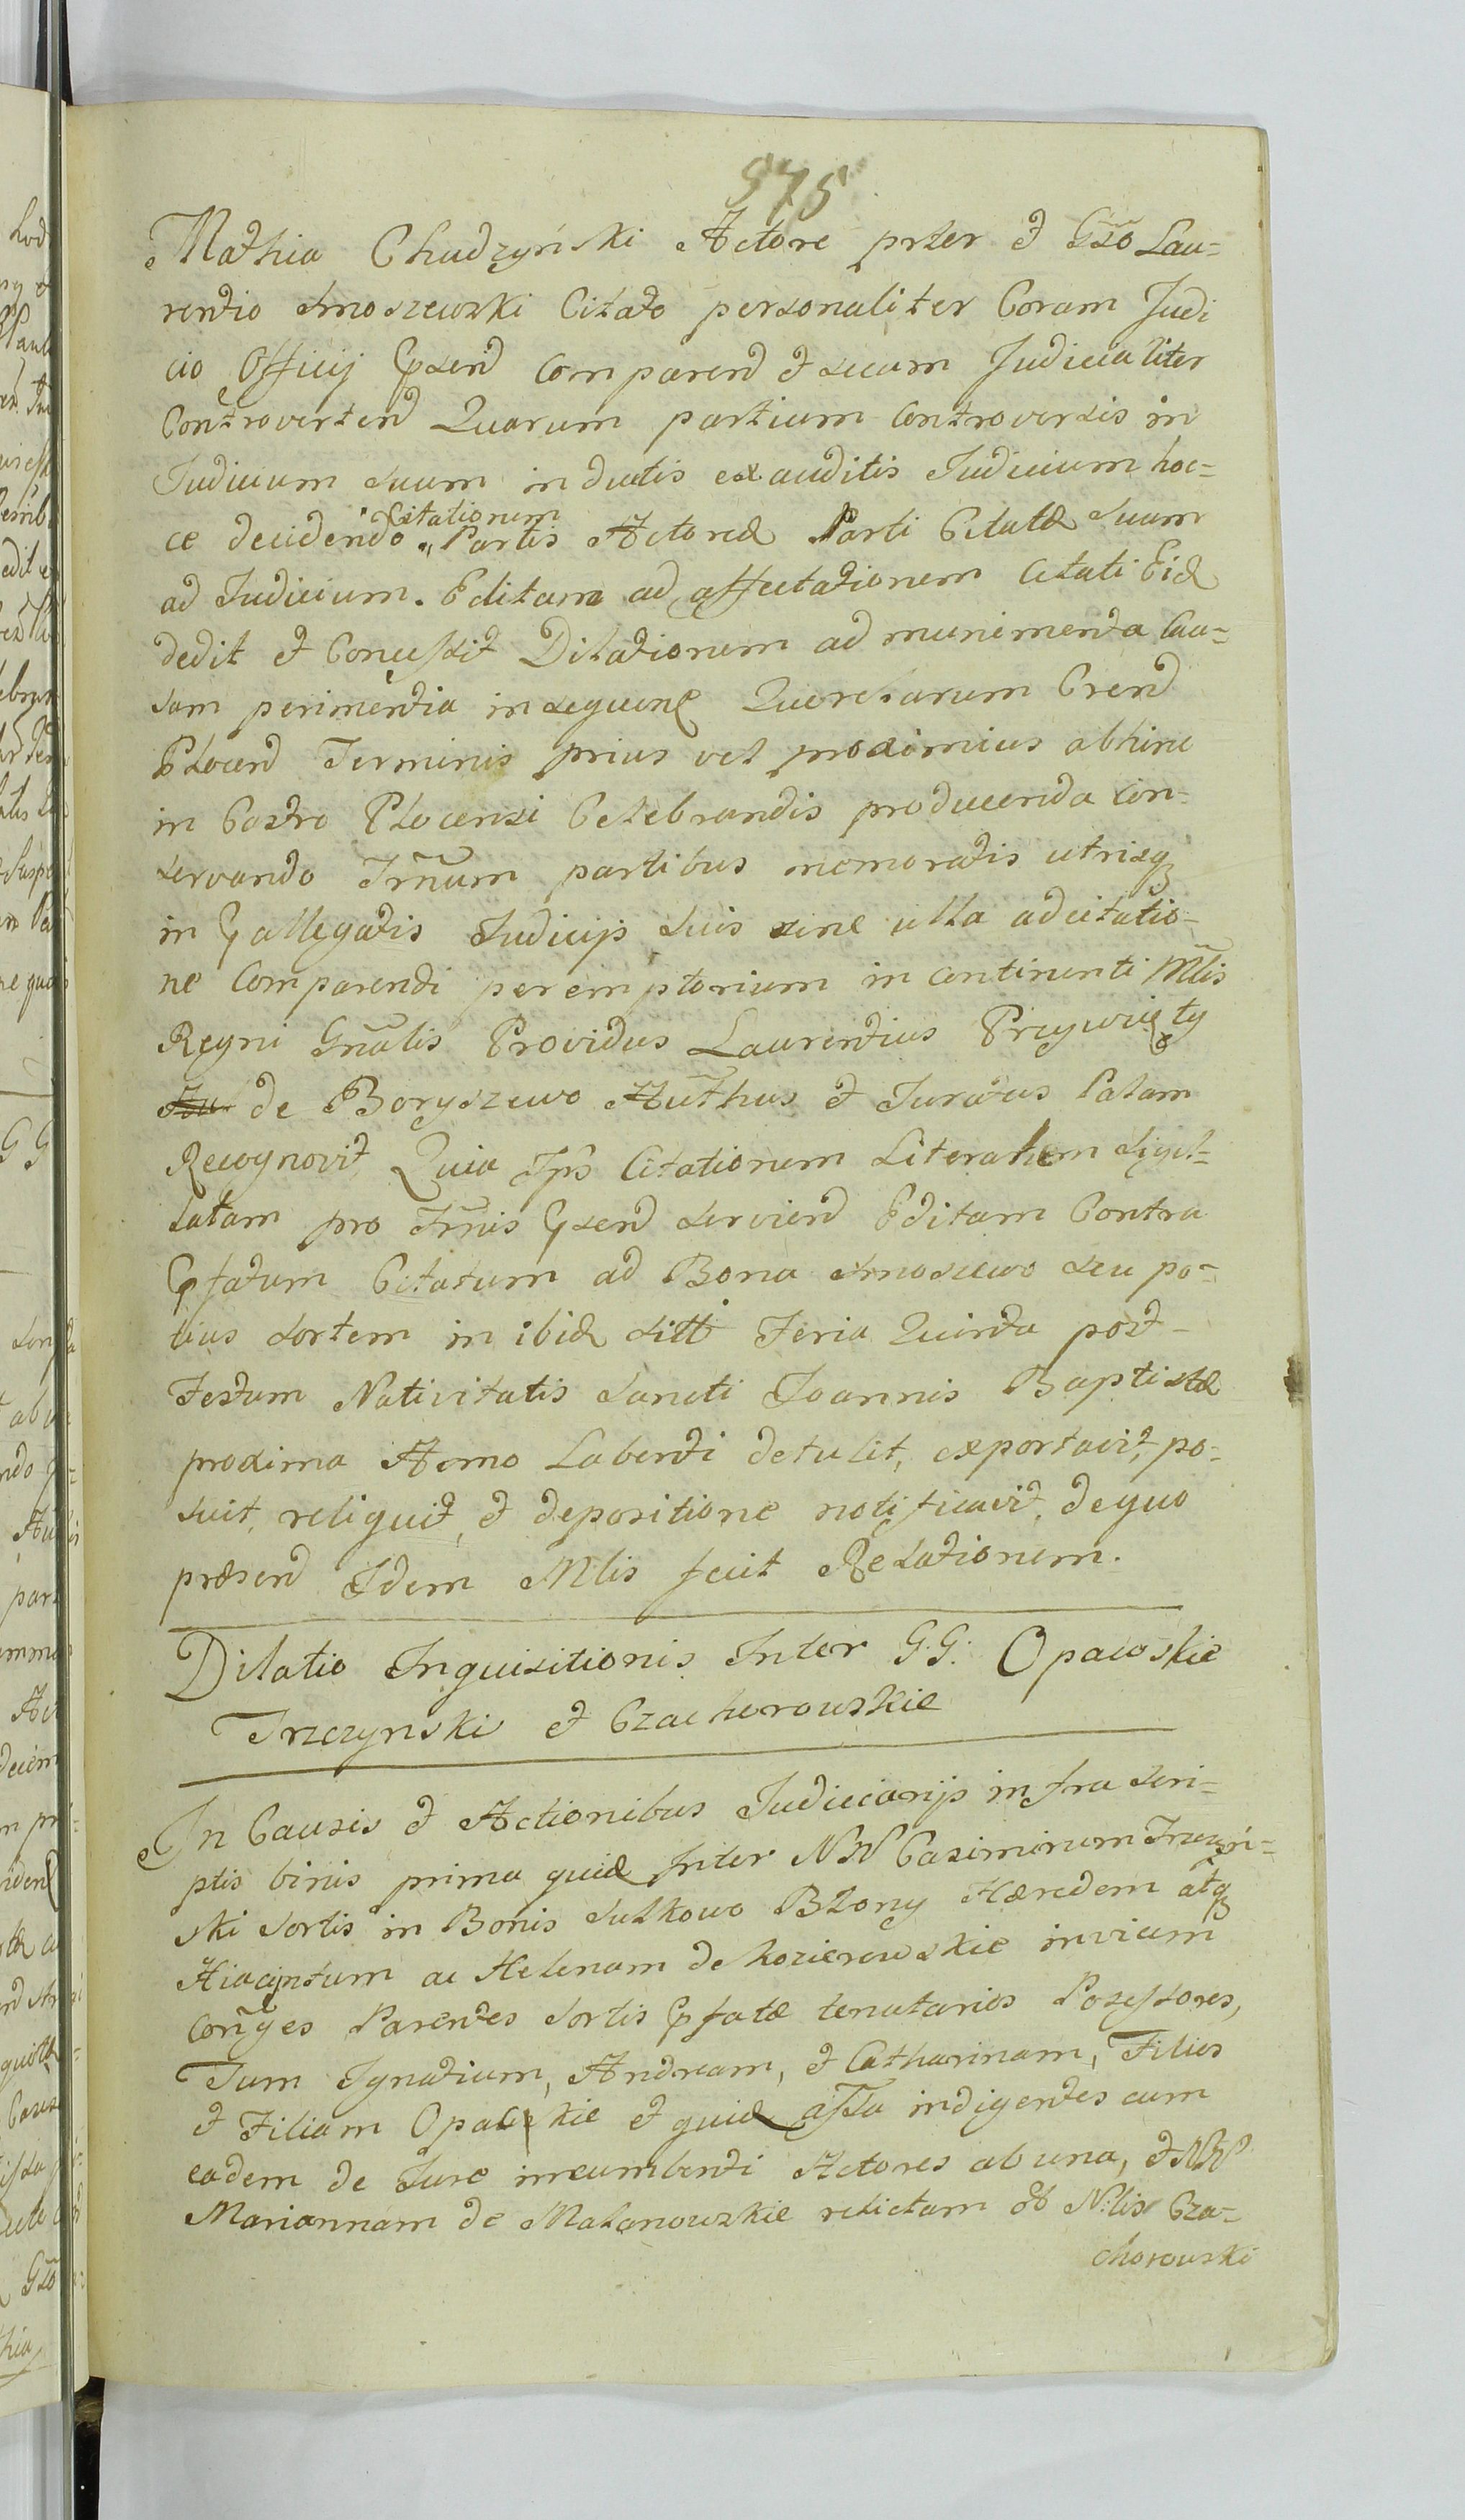 575
Mathia Chudzyński Actore prter et Gso Lau=
rentio Smoszewski Citato personaliter Coram Judi
cio Officij Psend comparend et secum Judicialiter
Controvertend Quarum partium controversis in
Judicium suum inductis exauditis Judicium hoc=
ce decidendo Citationem Partis Actoreæ Parti Citatæ suam
ad Judicium. Editam ad affectationem Citati Eid
dedit et Concessit Dilationem ad munimenta Cau=
sam perimentia in sequen Querelarum Crend
Plocen Terminis prius vel proximius abhinc
in Castro Plocensi Celebrandis producenda con=
servando Trnum partibus memoratis utrisq
in Pallegatis Judicijs suis sine ulla adcitatio=
ne Comparendi peremptorium in continenti Mlis
Regni Gnalis Providus Laurentius Przywity
de Boryszewo Authus et Juratus Palam
Recognovit Quia Ips Citationem Literalem sigil=
latam pro Trnis Psend servien Editam Contra
Pfatum Citatum ad Bona Smoszewo seu po=
tius sortem in ibid sitt Feria Quinta post
Festum Nativitatis Sancti Joannis Baptistæ
proxima Anno Labenti detulit, exportavit, po=
suit, reliquit, et depositione notificavit, de quo
præsend Idem Mlis fecit Relationem.
Dilatio Inquisitionis Inter G.G. Opacoskie
Trzcynski et Czachorowskie
In Causis et Actionibus Judiciarijs infra scri=
ptis binis prima quid Inter NN Casimirum Trzcyń=
ski sortis in Bonis Sulkowo Błony Hæredem atq
Hiacintum ac Helenam de Kozierowskie invicem
Conges Parentes Sortis Pfatæ tenutarios Possessores,
Tum Ignatium, Andream, et Catharinam, Filios
et Filiam Opackie et quid assa indigentes cum
eadem de Jure incumbenti Actores ab una, et NN
Mariannam de Malanowskie relictam ol Nlis Cza=
chorowski